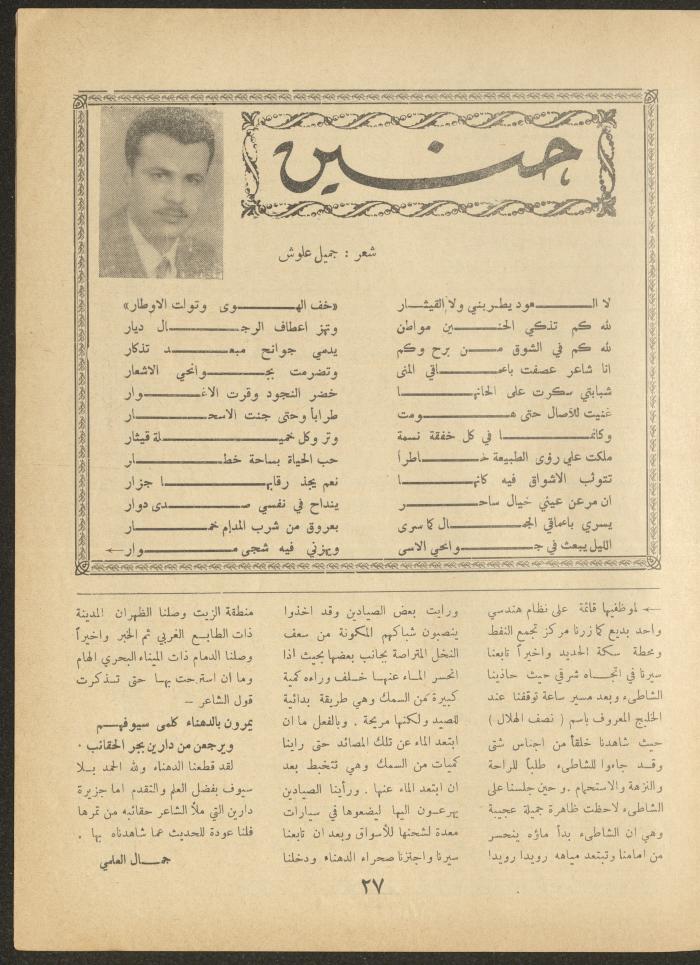 حنين
شعر : جميل علوش
لا العود يطربني ولا القيثار «خف الهوى وتوات الاوطار»
لله كم تذكي الحنين مواطن وتهز اعطاف الرجال ديار
لله كم في الشوق من برح وكم يدمي جوانح مبعد تذكار
انا شاعر عصفت باعماقي المنى وتضرمت بجوانحي الاشعار
شبابتي سكرت على الحانها خضر النجود وقرت الاغوار
غنيت للآصال حتى هومت طرابا وحتى جنت الاسحار
وكانما في كل خفقة نسمة وتر وكل خميلة قيثار
ملكت علي رؤى الطبيعة خاطراً حب الحياة بساحة خطار
تتوثب الاشواق فيه كانها نعم يجذ رقابها جزار
ان مر عن عيني خيال ساحر ينداح في نفسي صدى دوار
يسري باعماقي الجمال كما سرى بعروق من شرب المدام خمار
الليل يبعث في جوانحي الاسى ويهزني فيه شجى موار
لموظفيها قائمة على نظام هندسي
واحد بديع كما زرنا مركز تجمع النفط
ومحطة سكة الحديد واخيراً تابعنا
سيرنا في اتجاه شرقي حيث حاذينا
الشاطىء وبعد مسير ساعة توقفنا عند
الخليج المعروف باسم ( نصف الهلال )
حيث شاهدنا خلقاً من اجناس شتى
وقد جاءوا للشاطىء طلباً للراحة
والنزهة والاستحمام . وحين جلسنا على
الشاطىء لاحظت ظاهرة جميلة عجيبة
وهي ان الشاطىء بدأ ماؤه ينحسر
من امامنا وتبتعد مياهه رويدا رويدا
ورايت بعض الصيادين وقد اخذوا
ينصبون شباكهم المكونة من سعف
النخل المتراصة بجانب بعضها بحيث اذا
انحسر الماء عنها خلف وراءه كمية
كبيرة من السمك وهي طريقة بدائية
للصيد ولكنها مريحة . وبالفعل ما ان
ابتعد الماء عن تلك المصائد حتى راينا
كميات من السمك وهي تتخبط بعد
ان ابتعد الماء عنها . ورأينا الصيادين
يهرعون اليها ليضعوها في سيارات
معدة لشحنها للأسواق وبعد ان تابعنا
سيرنا واجتزنا صحراء الدهناء ودخلنا
منطقة الزيت وصلنا الظهران المدينة
ذات الطابع الغربي ثم الخبر واخيراً
وصلنا الدمام ذات الميناء البحري الهام
وما ان استرحت بها حتى تذكرت
قول الشاعر –
يمرون بالدهناء كلمى سيوفهم
ويرجعن من دارين بجر الحقائب .
لقد قطعنا الدهناء ولله الحمد بلا
سيوف بفضل العلم والتقدم اما جزيرة
دارين التي ملأ الشاعر حقائبه من تمرها
فلنا عودة للحديث عما شاهدناه بها .
جمال العلمي
٢٧